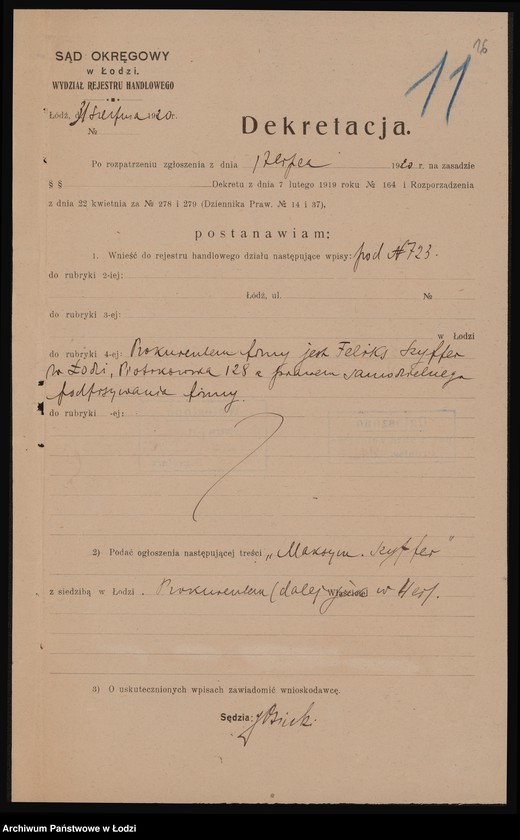 16
11
SĄD OKRĘGOWY
w Łodzi.
WYDZIAŁ REJESTRU HANDLOWEGO
Łódź, d. 31 sierpnia 1920 r.
№
Dekretacja.
Po rozpatrzeniu zgłoszenia z dnia 1920 r. na zasadzie
§ § Dekretu z dnia 7 lutego 1919 roku № 164 i Rozporządzenia
z dnia 22 kwietnia za № 278 i 279 (Dziennika Praw. № 14 i 37),
postanawiam:
1. Wnieść do rejestru handlowego działu następujące wpisy: pod № 723.
do rubryki 2-iej:
Łódź, ul. №
do rubryki 3-ej:
w Łodzi
do rubryki 4-ej: Prokurentem firmy jest Feliks Szyffer
w Łodzi, Piotrkowska 128 z prawem samodzielnego
podpisywania firmy.
do rubryki -ej:
2) Podać ogłoszenia następującej treści „Maksym. Szyffer"
z siedzibą w Łodzi. Prokurentem (dalej w
3) O uskutecznionych wpisach zawiadomić wnioskodawcę.
Sędzia:
Archiwum Państwowe w Łodzi